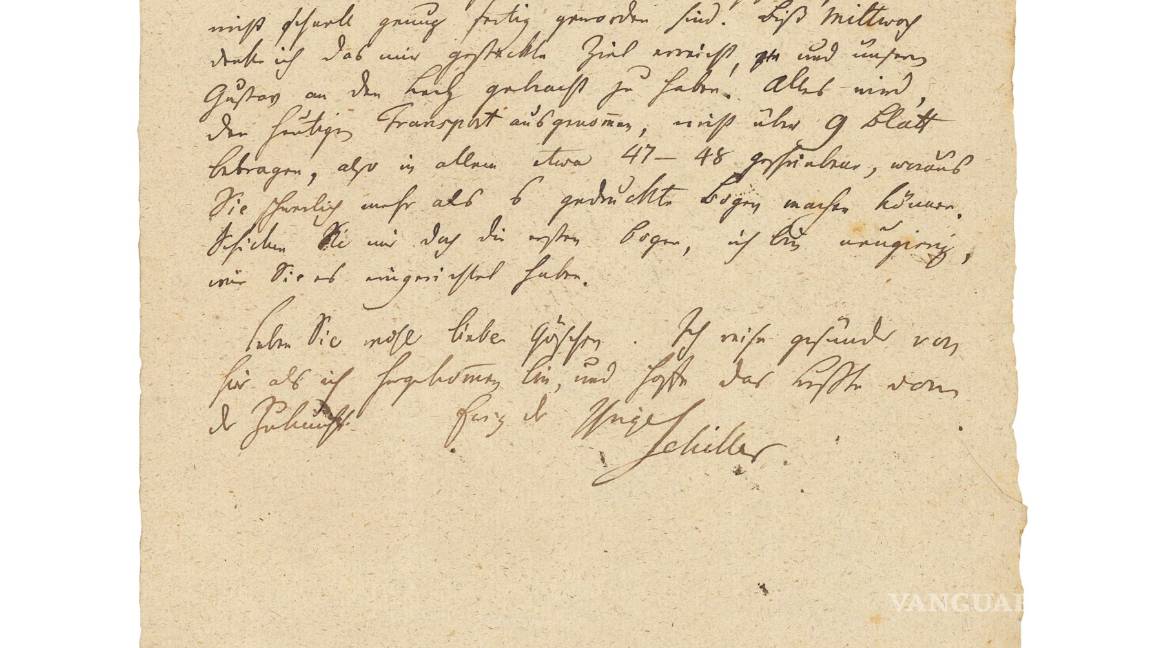 nicht schnell genug fertig geworden sind. Biß Mittwoch
denke ich das mir gesteckte Ziel erreicht, und unsern
Gustav an den Lech gebracht zu haben. Alles wird,
den heutigen Transport ausgenommen, nicht über 9 Blatt
betragen, also in allem etwa 47–48 geschriebene, woraus
Sie schwerlich mehr als 6 gedruckte Bogen machen können.
Schicken Sie mir doch die ersten Bogen, ich bin neugierig,
wie Sie es eingerichtet haben.
Leben Sie wohl lieber Göschen. Ich reise gesünder von
hier als ich hergekommen bin, und hoffe das beßte von
der Zukunft. Ewig der Ihrige
Schiller.
VANGUAR